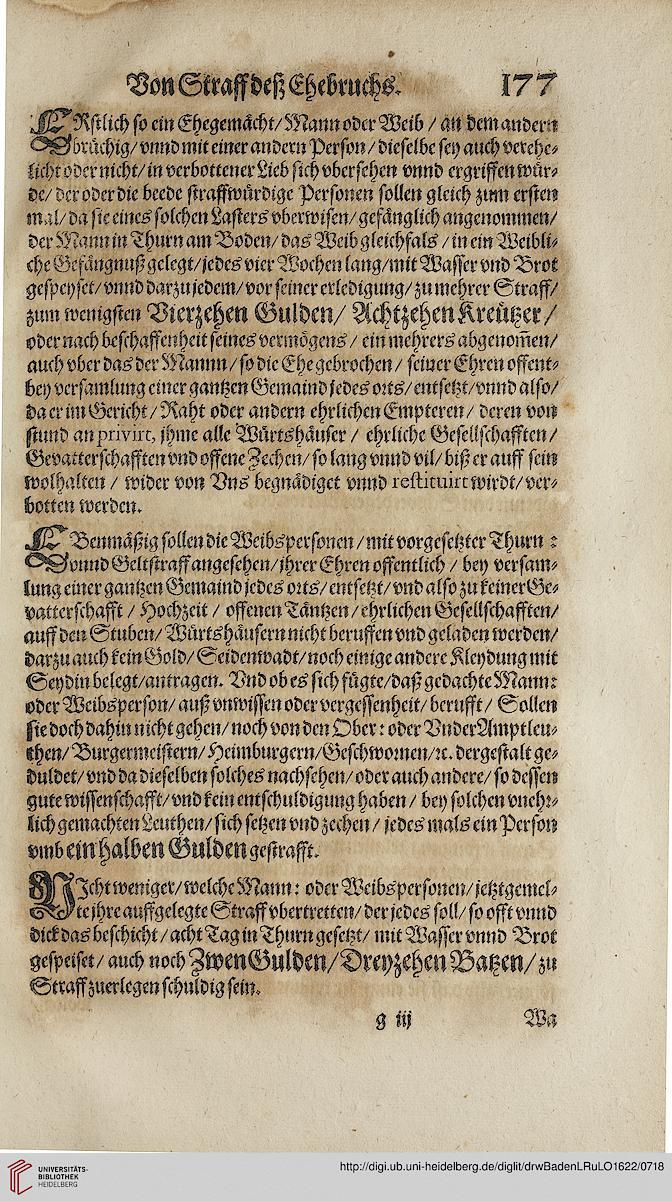 Von Straff deß Ehebruchs. 177
ERstlich so ein Ehegemächt/ Mann oder Weib / an dem andern
brüchig/ vnnd mit einer andern Person / dieselbe sey auch verehe⸗
licht oder nicht/ in verbottener Lieb sich vbersehen vnnd ergriffen wür⸗
de/ der oder die beede straffwürdige Personen sollen gleich zum ersten
mal/ da sie eines solchen Lasters vberwisen/ gefänglich angenommen/
der Mann in Thurn am Boden/ das Weib gleichfals / in ein Weibli⸗
che Gefängnuß gelegt/ jedes vier Wochen lang/ mit Wasser vnd Brot
gespeyset/ vnnd darzu jedem/ vor seiner erledigung/ zu mehrer Straff/
zum wenigsten Vierzehen Gulden/ Achtzehen Kreützer/
oder nach beschaffenheit seines vermögens / ein mehrers abgenom̃en/
auch vber das der Mannn/ so die Ehe gebrochen / seiner Ehren offent⸗
bey versamlung einer gantzen Gemaind jedes orts/ entsetzt/ vnnd also/
da er im Gericht / Raht oder andern ehrlichen Empteren/ deren von
stund an privirt, jhme alle Würtshäuser / ehrliche Gesellschafften /
Gevatterschafften vnd offene Zechen/ so lang vnnd vil/ biß er auff sein
wolhalten / wider von Vns begnädiget vnnd restituirt wirdt/ ver⸗
botten werden.
EBenmäßig sollen die Weibspersonen / mit vorgesetzter Thurn⸗
vnnd Geltstraff angesehen/ jhrer Ehren offentlich / bey versam⸗
lung einer gantzen Gemaind jedes orts/ entsetzt/ vnd also zu keiner Ge⸗
vatterschafft / Hochzeit / offenen Täntzen/ ehrlichen Gesellschafften/
auff den Stuben/ Würtshäusern nicht beruffen vnd geladen werden/
darzu auch kein Gold/ Seidenwadt/ noch einige andere Kleydung mit
Seydin belegt/ antragen. Vnd ob es sich fügte/ daß gedachte Mann⸗
oder Weibsperson/ auß vnwissen oder vergessenheit/ berufft / Sollen
sie doch dahin nicht gehen/ noch von den Ober⸗ oder VnderAmptleu⸗
then/ Burgermeistern/ Heimburgern/ Geschwornen/ ꝛc. dergestalt ge⸗
duldet/ vnd da dieselben solches nachsehen/ oder auch andere/ so dessen
gute wissenschafft/ vnd kein entschuldigung haben / bey solchen vnehr⸗
lich gemachten Leuthen/ sich setzen vnd zechen / jedes mals ein Person
vmb ein halben Gulden gestrafft.
NIcht weniger/ welche Mann⸗ oder Weibspersonen/ jetztgemel⸗
te jhre auffgelegte Straff vbertretten/ der jedes soll/ so offt vnnd
dick das beschicht / acht Tag in Thurn gesetzt/ mit Wasser vnnd Brot
gespeiset/ auch noch Zwen Gulden/ Dreyzehen Batzen/ zu
Straff zuerlegen schuldig sein.
g iij Wa
UNIVERSITÄTS-
BIBLIOTHEK
HEIDELBERG
http://digi.ub.uni-heidelberg.de/diglit/drwBadenLRuLO1622/0718